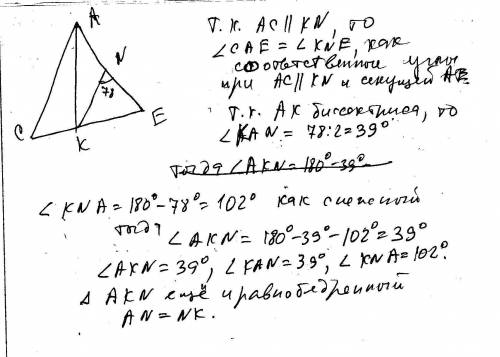 A
N
78
C
K
E
Т.к. AC || KN, то
∠CAE = ∠KNE, как
соответственной углы
при AC || KN и секущей AE
Т.к. AK биссектриса, то
∠KAN = 78:2=39°
тогда ∠AKN = 180°-39°-
∠KNA = 180°-78°= 102° как смежный
тогда
∠AKN = 180°-39°-102°= 39°
∠AKN = 39°, ∠KAN = 39°, ∠KNA = 102°.
Δ AKN ещё и равнобедренный
AN = NK.